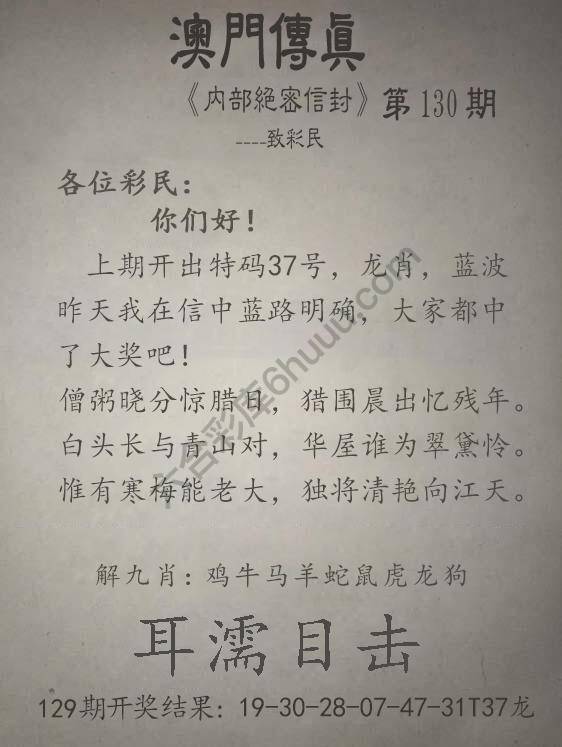 澳門傳眞
《内部絕密信封》第130期
----致彩民
各位彩民：
你们好！
上期开出特码37号，龙肖，蓝波
昨天我在信中蓝路明确，大家都中
了大奖吧！
僧粥晓分惊腊日，猎围晨出忆残年。
白头长与青山对，华屋谁为翠黛怜。
惟有寒梅能老大，独将清艳向江天。
解九肖：鸡牛马羊蛇鼠虎龙狗
耳濡目击
129期开奖结果：19-30-28-07-47-31T37龙
六合彩库6huuu.com